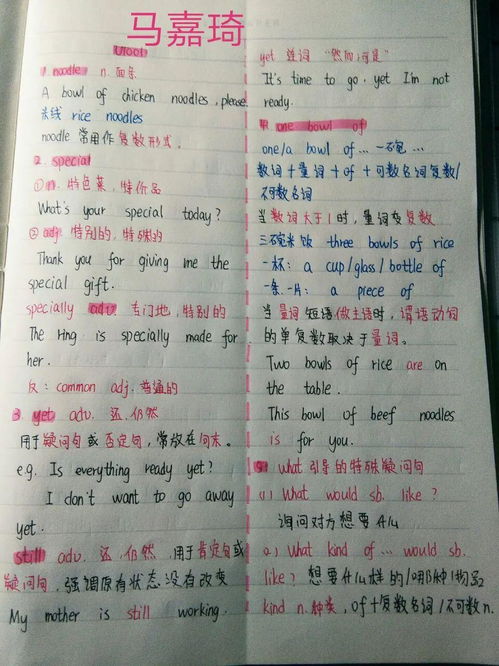 马嘉琦
Unit01
1. noodle n. 面条
A bowl of chicken noodles, please.
米线 rice noodles
noodle 常用作复数形式。
2. special
①n. 特色菜, 特价品
What's your special today?
②adj. 特别的, 特殊的
Thank you for giving me the
special gift.
specially adv. 专门地, 特别的
The ring is specially made for
her.
反: common adj. 普通的
3. yet adv. 还, 仍然
用于疑问句或否定句, 常放在句末。
e.g. Is everything ready yet?
I don't want to go away
yet.
still adv. 还, 仍然, 用于肯定句或
疑问句, 强调原有状态没有改变
My mother is still working.
yet 连词 "然而, 可是"
It's time to go, yet I'm not
ready.
one bowl of
one/a bowl of … 一碗…
数词+量词+of+可数名词复数/
不可数名词
当数词大于1时, 量词变复数
三碗米饭 three bowls of rice
一杯: a cup/glass/bottle of
一条.一片: a piece of
当量词短语做主语时, 谓语动词
的单复数取决于量词。
Two bowls of rice are on
the table.
This bowl of beef noodles
is for you.
what 引导的特殊疑问句
(1) What would sb. like?
询问对方想要什么
2) What kind of … would sb.
like? 想要什么样的/哪种物品
kind n. 种类, of+复数名词/不可数n.